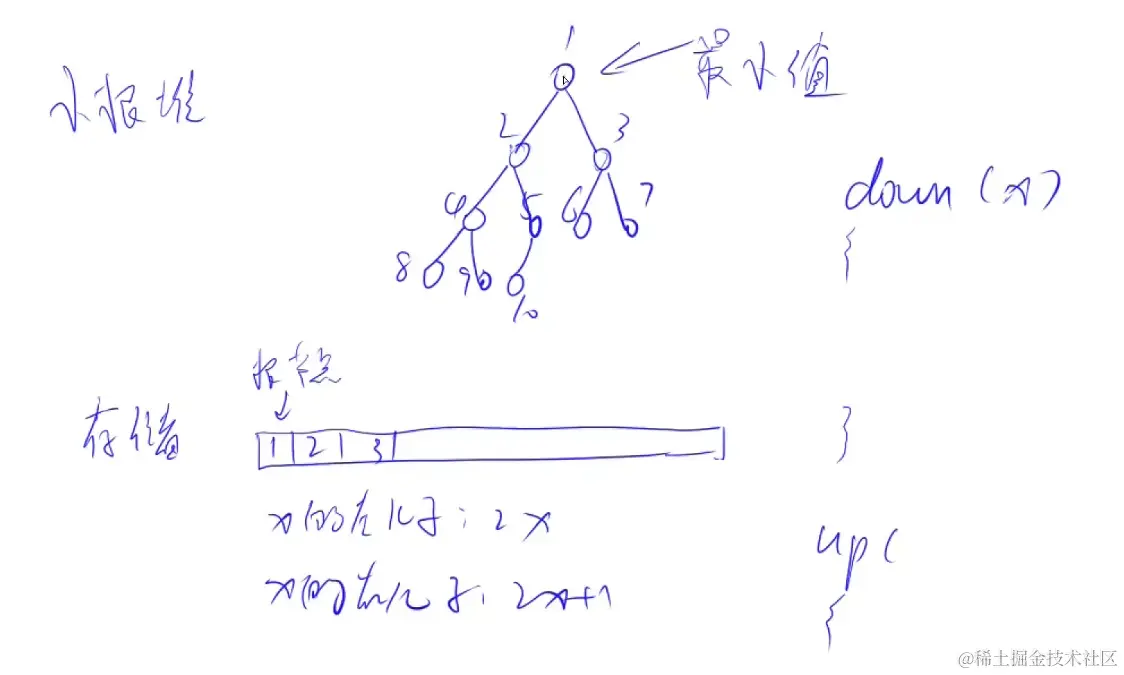 小根堆
最小值
1
2 3
4 5 6 7
8 9 10
down (x)
{
}
根节点
存储
1 2 3
x的左儿子: 2x
x的右儿子: 2x+1
up (
{
@稀土掘金技术社区